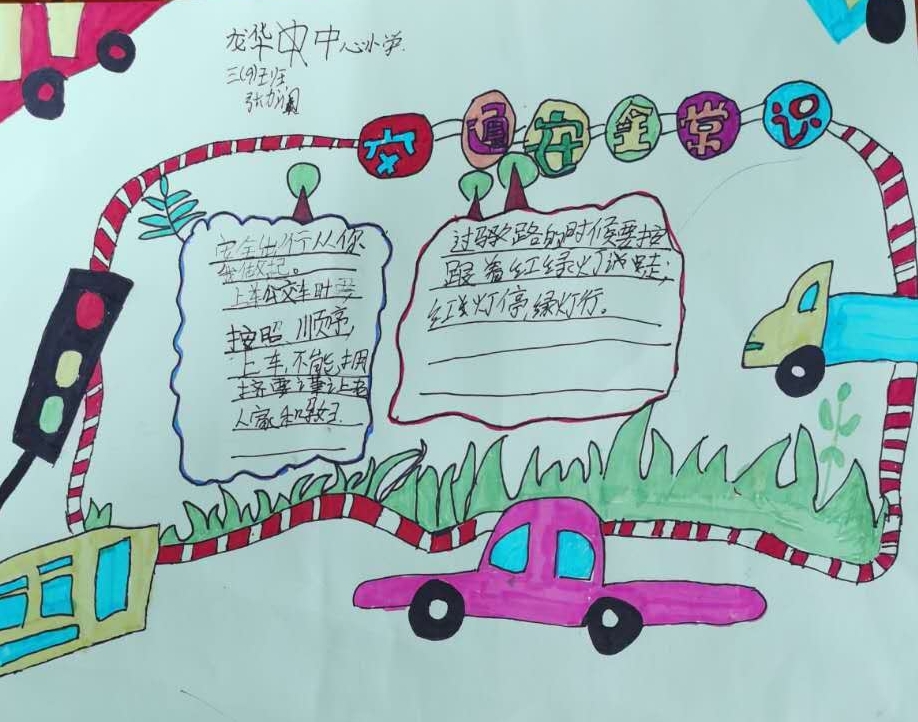 龙华中心小学
三(9)班
交通安全常识
安全出行从你
我做起。
上车公交车时要
按照顺序
上车,不能拥
挤要谦让老
人家和
过马路的时候要
跟着红绿灯
红灯停,绿灯行。